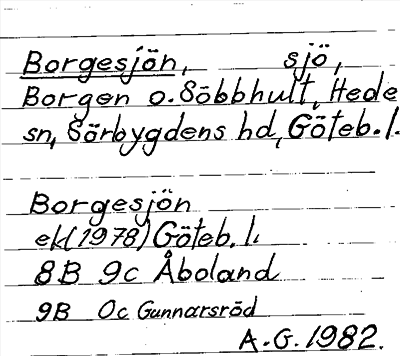 Borgesjön, sjö,
Borgen o. Söbbhult, Hede
sn, Sörbygdens hd, Göteb. l.
Borgesjön
ek (1978) Göteb. l.
8B 9c Åboland
9B 0c Gunnarsröd
A.G. 1982.